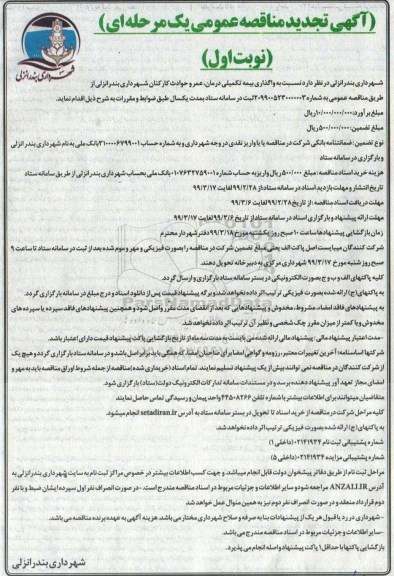 (آگهی تجدید مناقصه عمومی یک مرحله ای)
(نوبت اول)
شهرداری بندرانزلی
شهرداری بندرانزلی در نظر دارد نسبت به واگذاری بیمه تکمیلی درمان، عمر و حوادث کارکنان شهرداری بندرانزلی از
طریق مناقصه عمومی به شماره ۲۰۹۹۰۰۵۲۳۰۰۰۰۰۰۳ ثبت در سامانه ستاد بمدت یکسال طبق ضوابط و مقررات به شرح ذیل اقدام نماید.
مبلغ برآورد: ۱۰/۰۰۰/۰۰۰/۰۰۰ ریال
مبلغ تضمین: ۵۰۰/۰۰۰/۰۰۰ ریال
نوع تضمین: ضمانتنامه بانکی شرکت در مناقصه یا واریز نقدی در وجه شهرداری و به شماره حساب ۳۱۰۰۰۰۶۷۹۹۰۰۱ بانک ملی به نام شهرداری بندر انزلی
و بارگزاری در سامانه ستاد
هزینه خرید اسناد مناقصه: مبلغ ۵۰۰/۰۰۰ ریال واریز به حساب شماره ۰۱۰۷۶۳۲۷۵۹۰۰۱ بانک ملی بحساب شهرداری بندرانزلی از طریق سامانه ستاد
تاریخ انتشار و مهلت بازدید اسناد در سامانه ستاد: از ۹۹/۲/۲۸ لغایت ۹۹/۳/۱۷
مهلت دریافت اسناد مناقصه: از تاریخ ۹۹/۲/۲۸ لغایت ۹۹/۳/۶
مهلت ارائه پیشنهاد و بارگزاری اسناد در سامانه ستاد از تاریخ ۹۹/۳/۶ لغایت ۹۹/۳/۱۷
زمان بازگشایی پیشنهادها ساعت ۱۰ صبح روز یکشنبه مورخ ۹۹/۳/۱۸ دفتر شهردار محترم
شرکت کنندگان میبایست اصل پاکت الف یعنی مبلغ تضمین شرکت در مناقصه را بصورت فیزیکی و مهر و موم شده بعد از ثبت در سامانه ستاد تا ساعت ۹
صبح روز شنبه مورخ ۹۹/۳/۱۷ شهرداری مرکزی به دبیرخانه تحویل دهند.
کلیه پاکتهای الف و ب و ج بصورت الکترونیکی در بستر سامانه ستاد بارگزاری و ارسال گردد.
به پاکتهای (ج) ارائه شده بصورت فیزیکی ترتیب اثر داده نخواهد شد، و برگه پیشنهاد قیمت پس از دانلود اسناد و درج مبلغ در سامانه بارگزاری گردد.
به پیشنهادهای فاقد امضاء، مشروط، مخدوش و پیشنهادهایی که بعد از انقضای مدت مقرر واصل شود و همچنین پیشنهادهای فاقد سپرده یا سپرده های
مخدوش و یا کمتر از میزان مقرر چک شخصی و نظیر آن ترتیب اثر داده نخواهد شد.
-مدت اعتبار پیشنهاد مالی: پیشنهاد مالی ارائه شده می بایست به مدت سه ماه از تاریخ بازگشایی پاکت پیشنهاد قیمت دارای اعتبار باشد.
شرکتها اساسنامه؛ آخرین تغییرات معتبر، رزومه و گواهی امضا برای صاحبان امضاء که همگی باید برابر اصل باشد و در سامانه ستاد بارگزاری گردد و هیچ یک
از شرکت کنندگان در مناقصه نمی توانند بیش از یک پیشنهاد تسلیم نمایند. تمام اسناد (خریداری شده) مناقصه از جمله شروط اوراق مناقصه باید به مهر و
امضای مجاز تعهد آور پیشنهاد دهنده برسد و در مستندات سامانه تدارکات الکترونیک دولت (ستاد) بارگزاری شود.
متقاضیان میتوانند برای اطلاعات بیشتر با شماره تلفن ۴۴۵۰۸۲۶۶ واحد پیمان و رسیدگی تماس حاصل نمایند
کلیه مراحل شرکت در مناقصه از خرید اسناد تا تحویل در بستر سامانه ستاد به آدرس setadiran.ir انجام میشود.
به پاکتهای (ج) ارائه شده بصورت فیزیکی ترتیب اثر داده نخواهد شد.
شماره پشتیبانی ثبت نام ۰۲۱۴۱۹۳۴ (داخلی ۱)
شماره پشتیبانی مزایده ۰۲۱۴۱۹۳۴ (داخلی ۵)
مراحل ثبت نام از طریق دفاتر پیشخوان دولت قابل انجام میباشد. و جهت کسب اطلاعات بیشتر در خصوص مراکز ثبت نام به سایت شهرداری بندرانزلی به
آدرس ANZALI.IR مراجعه شود و سایر اطلاعات و جزئیات مربوط در اسناد مناقصه مندرج است. -در صورت انصراف نفر اول سپرده ایشان ضبط و با نفر
دوم قرارداد منعقد و در صورت انصراف نفر دوم نیز به همین منوال عمل خواهد شد
-شهرداری در رد یا قبول هر یک از پیشنهادات بنا به صرفه و صلاح شهرداری مختار می باشد. هزینه آگهی به عهده برنده مناقصه می باشد.
-سایر اطلاعات و جزئیات مربوط در اسناد مناقصه مندرج می باشد.
بازگشایی پاکتها با حداقل ۱ پاکت پیشنهاد واصله انجام می پذیرد.
شهرداری بندرانزلی